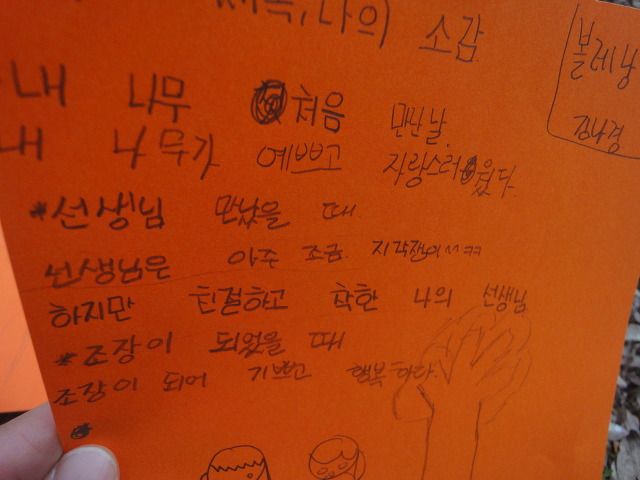 나의 소감
볼레낭
김나경
내 나무 처음 만난 날.
내 나무가 예쁘고 자랑스러웠다.
*선생님 만났을 때
선생님은 아주 조금.
하지만 친절하고 착한 나의 선생님
*조장이 되었을 때
조장이 되어 기쁘고 행복하다.